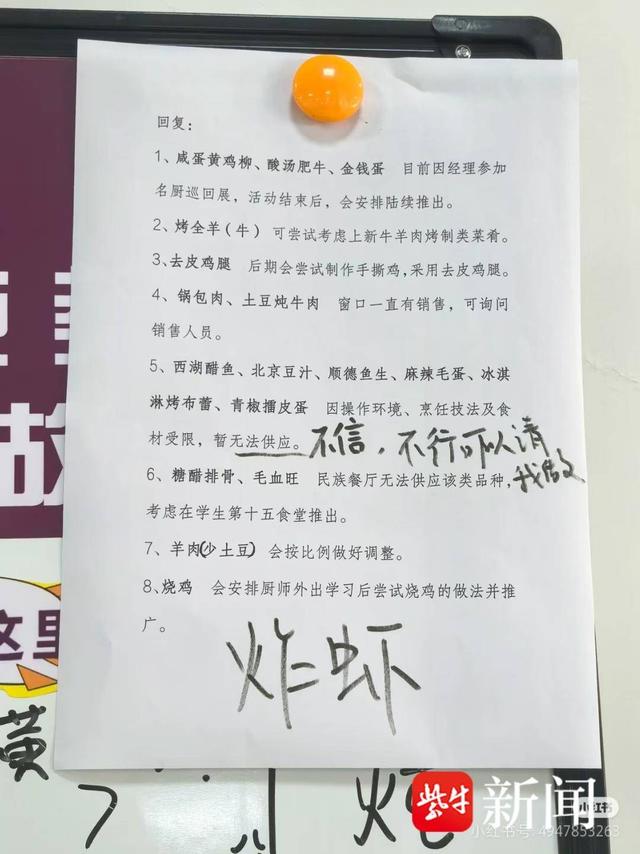 回复：
1、咸蛋黄鸡柳、酸汤肥牛、金钱蛋 目前因经理参加
名厨巡回展，活动结束后，会安排陆续推出。
2、烤全羊（牛）可尝试考虑上新牛羊肉烤制类菜肴。
3、去皮鸡腿 后期会尝试制作手撕鸡，采用去皮鸡腿。
4、锅包肉、土豆炖牛肉 窗口一直有销售，可询问
销售人员。
5、西湖醋鱼、北京豆汁、顺德鱼生、麻辣毛蛋、冰淇
淋烤布蕾、青椒擂皮蛋 因操作环境、烹饪技法及食
材受限，暂无法供应。不信，不行可以请
我
6、糖醋排骨、毛血旺 民族餐厅无法供应该类品种，
考虑在学生第十五食堂推出。
7、羊肉（少土豆）会按比例做好调整。
8、烧鸡 会安排厨师外出学习后尝试烧鸡的做法并推
广。
炸虾
这里
黄
紫牛新闻
小红书
小红书号：4947853263